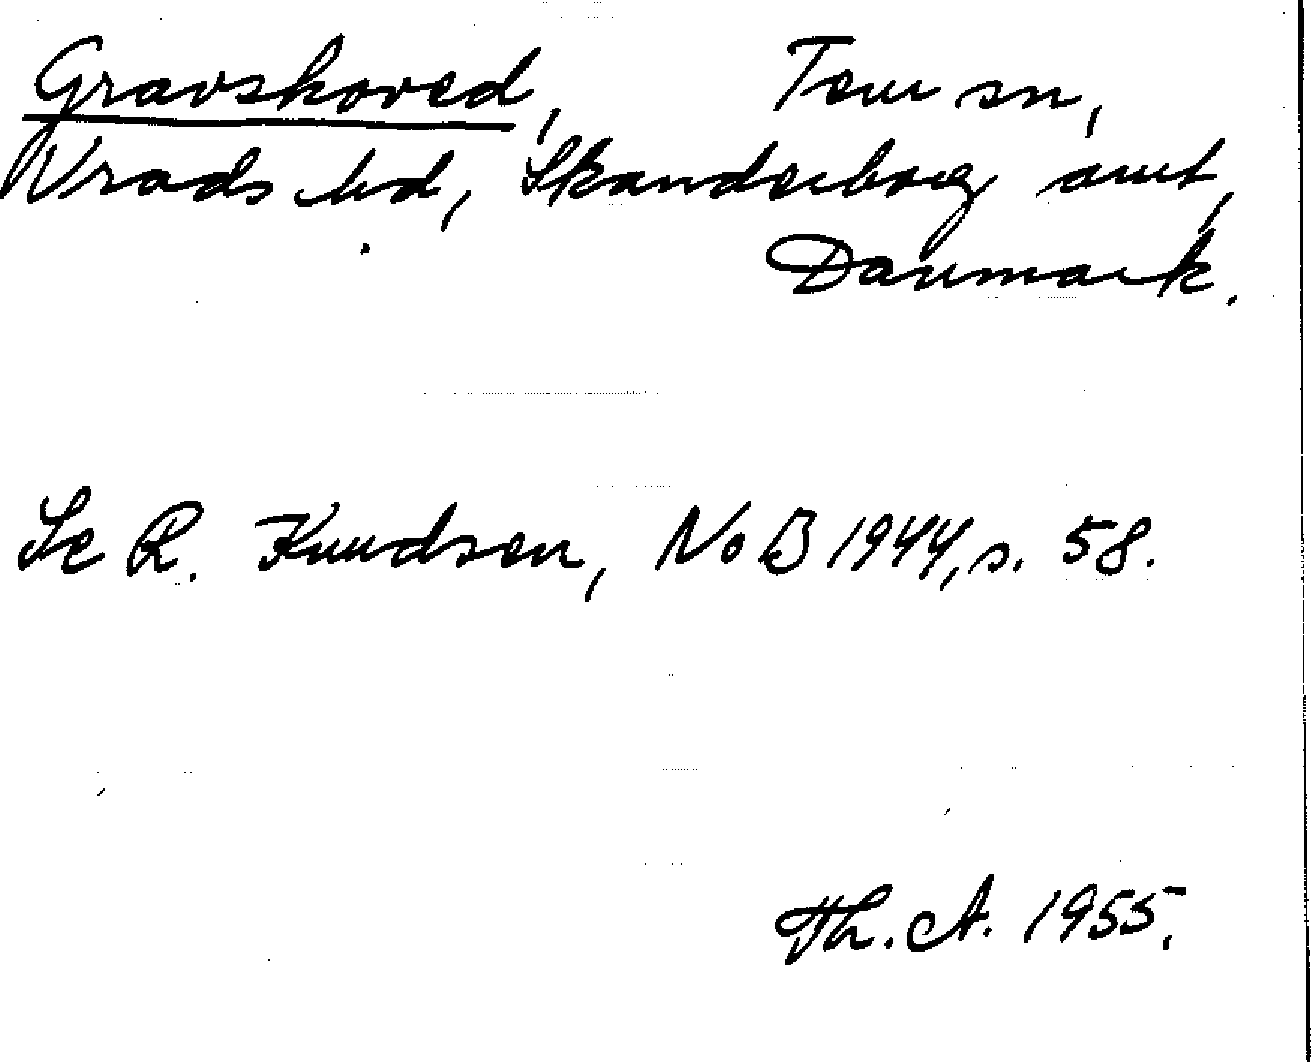 Gravshoved, Tem sn,
Vrads hd, Skanderborg amt,
Danmark.
Se R. Knudsen, NoB 1944, s. 58.
Th. A. 1955.